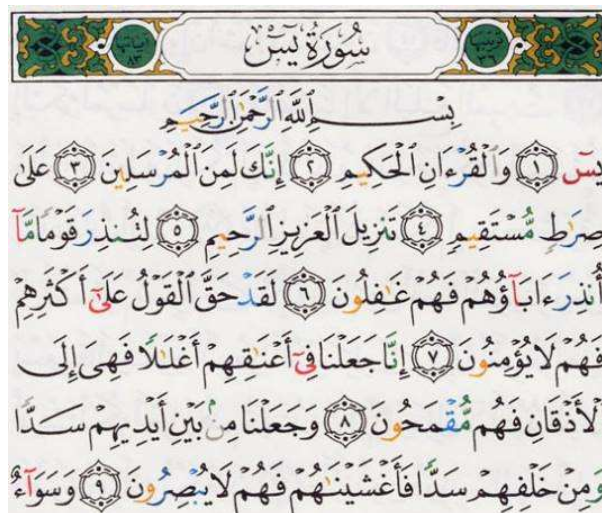 ترتيبها ٣٦ سُورَةُ يسٓ آياتها ٨٣
بِسْمِ ٱللَّهِ ٱلرَّحْمَٰنِ ٱلرَّحِيمِ
يسٓ ١ وَٱلْقُرْءَانِ ٱلْحَكِيمِ ٢ إِنَّكَ لَمِنَ ٱلْمُرْسَلِينَ ٣ عَلَىٰ
صِرَٰطٍ مُّسْتَقِيمٍ ٤ تَنزِيلَ ٱلْعَزِيزِ ٱلرَّحِيمِ ٥ لِتُنذِرَ قَوْمًا مَّآ
أُنذِرَ ءَابَآؤُهُمْ فَهُمْ غَٰفِلُونَ ٦ لَقَدْ حَقَّ ٱلْقَوْلُ عَلَىٰٓ أَكْثَرِهِمْ
فَهُمْ لَا يُؤْمِنُونَ ٧ إِنَّا جَعَلْنَا فِىٓ أَعْنَٰقِهِمْ أَغْلَٰلًا فَهِىَ إِلَى
ٱلْأَذْقَانِ فَهُم مُّقْمَحُونَ ٨ وَجَعَلْنَا مِنۢ بَيْنِ أَيْدِيهِمْ سَدًّا
وَمِنْ خَلْفِهِمْ سَدًّا فَأَغْشَيْنَٰهُمْ فَهُمْ لَا يُبْصِرُونَ ٩ وَسَوَآءٌ